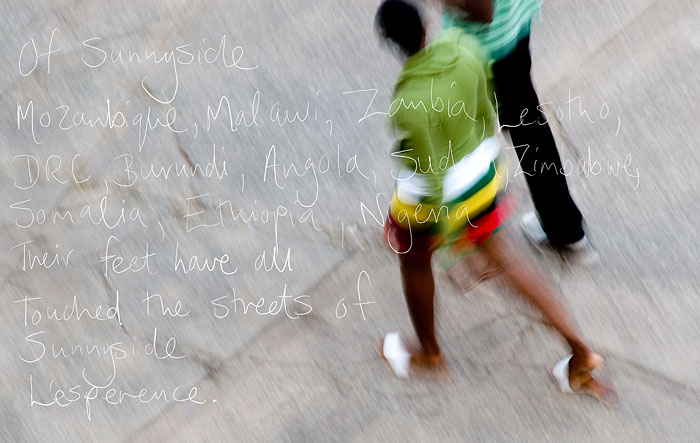 Of Sunnyside
Mozambique, Malawi, Zambia, Lesotho,
DRC, Burundi, Angola, Sudan, Zimbabwe,
Somalia, Ethiopia, Nigeria
Their feet have all
Touched the streets of
Sunnyside
L'esperence.